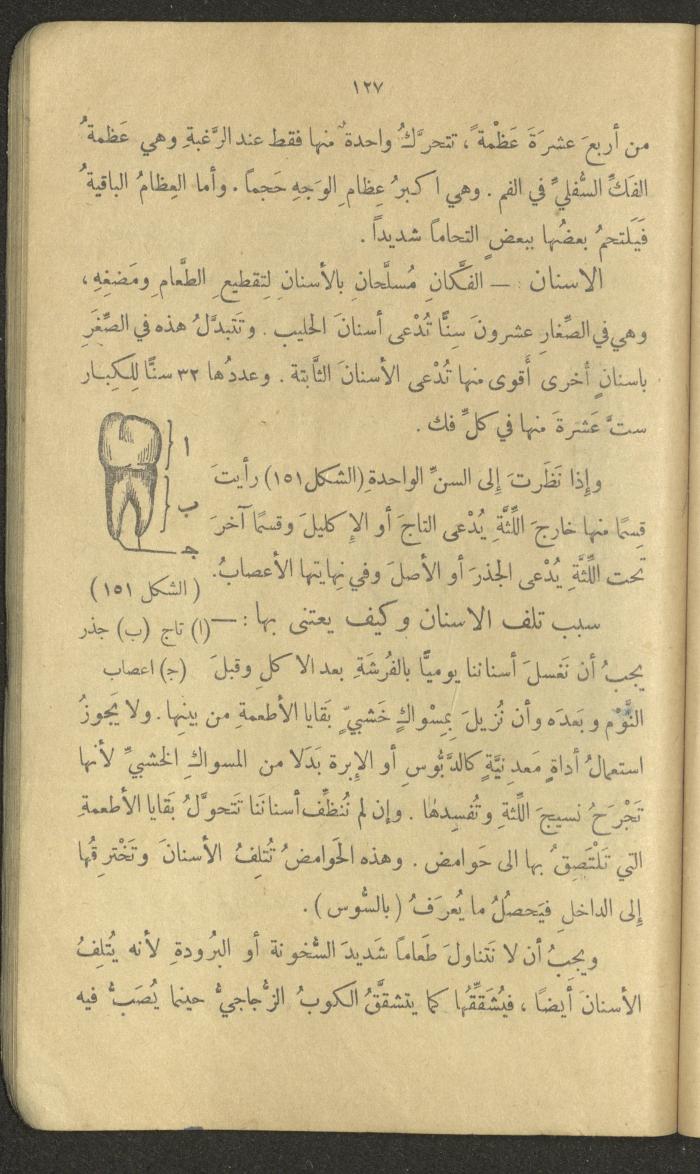 ١٢٧
من أربعَ عشرَةَ عَظْمةً ، تتحرَّكُ واحدةٌ منها فقط عند الرَّغبةِ وهي عَظمةُ
الفَكِّ السُّفليِّ في الفم . وهي اكبرُ عِظام ِ الوَجهِ حَجماً . وأما العِظامُ الباقيةُ
فَيَلتحمُ بعضُها ببعضٍ التحاماً شديداً .
الاسنان : — الفَكَّانِ مُسلَّحانِ بالأسنانِ لِتقطيع ِ الطَّعام ِ ومَضغِهِ ،
وهي في الصِّغارِ عشرونَ سِنًّا تُدْعى أسنانَ الحليب . وتَتبدَّلُ هذه في الصِّغَرِ
باسنانٍ أخرى أَقوى منها تُدْعى الأسنانَ الثَّابتة . وعددُها ٣٢ سنًّا لِلكِبار
ستَّ عَشرَةَ منها في كلِّ فك .
ا
وإِذا نَظَرتَ إلى السنِّ الواحدةِ (الشكل ١٥١) رأيتَ
ب
قِسمًا منها خارجَ اللِّثَةِ يُدْعى التاجَ أو الإِكليلَ وقسمًا آخرَ
جـ
تحت اللِّثَةِ يُدْعى الجذرَ أو الأصلَ وفي نِهايتها الأعصابُ.
(الشكل ١٥١)
سبب تلف الاسنان وكيف يعتنى بها : —
(ا) تاج (ب) جذر
يجبُ أن نَغسلَ أسناننا يوميًّا بالفُرشَةِ بعد الاكلِ وقبلَ
(ج) اعصاب
النَّوْم وبعدَه وأن نُزيلَ بِمِسْواكٍ خَشبيّ ٍ بَقايا الأطعمةِ من بينِها . ولا يَجوزُ
استعمالُ أداةٍ مَعدِنيَّةٍ كالدَّبُّوسِ أو الإِبرة بَدَلا من المسواكِ الخشبيِّ لأنها
تَجْرَحُ نسيجَ اللِّثةِ وتُفسِدها . وإن لم نُنظِّف أسناننَا تَتحوَّلُ بَقايا الأطعمةِ
التي تَلْتَصِقُ بها الى حَوامض . وهذه الحَوامضُ تُتلِفُ الأسنانَ وتَخْترِقُها
إلى الداخلِ فيَحصُلُ ما يُعرَفُ ( بالسُّوس ) .
ويجبُ أن لا نَتناولَ طَعاماً شَديدَ السُّخونة أو البُرودةِ لأنه يُتلِفُ
الأسنانَ أيضًا ، فيُشَقِّقُها كما يتشقَّقُ الكوبُ الزُّجاجيُّ حينما يُصَبُّ فيه